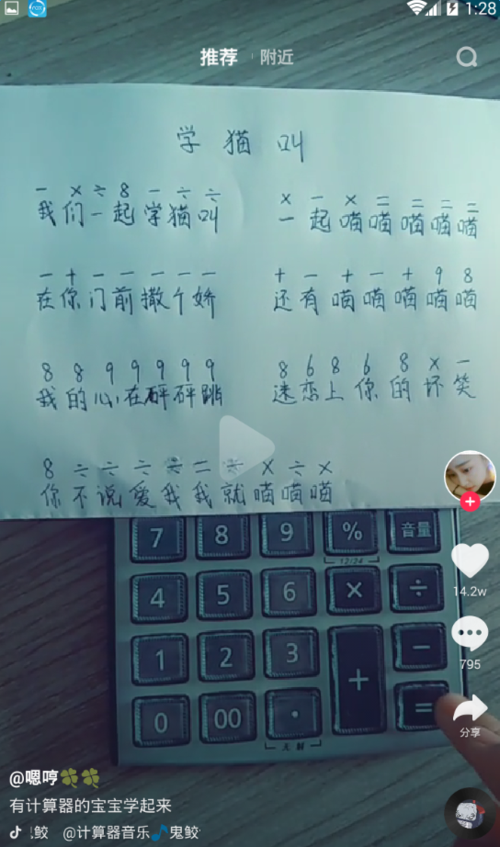 1:28
推荐 附近
学猫叫
－ × ÷ 8 － ÷ ÷
我们一起学猫叫
× － × = = = =
一起喵喵喵喵喵
－ + － － － － －
在你门前撒个娇
+ － + － + 9 8
还有喵喵喵喵喵
8 8 9 9 9 9 9
我的心在砰砰跳
8 6 8 6 8 × －
迷恋上你的坏笑
8 ÷ ÷ ÷ ÷ = ÷ × ÷ ×
你不说爱我我就喵喵喵
7 8 9 % 音量
12/24
4 5 6 × ÷
1 2 3 + －
0 00 · =
14.2w
795
分享
@嗯哼🍀🍀
有计算器的宝宝学起来
鲛 @计算器音乐🎵鬼鲛